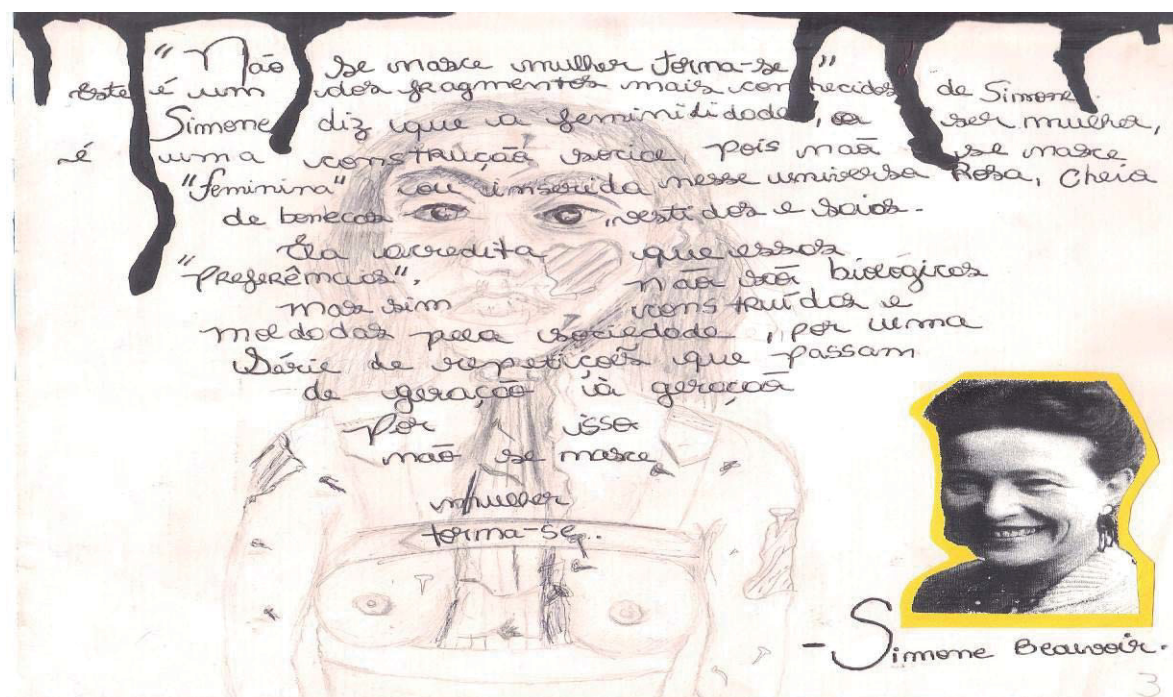 "Não se nasce mulher torma-se"
este é um dos fragmentos mais conhecidos de Simone.
Simone diz que a feminilidade, o ser mulher,
é uma construção social, pois não se nasce
"feminina" ou inserida nesse universo Rosa, cheio
de bonecas, vestidos e saias.
Ela acredita que essas
"preferências", não são biológicas
mas sim construídas e
moldadas pela sociedade, por uma
Série de repetições que passam
de geração à geração
Por isso
não se nasce
mulher
torma-se..
- Simone Beauvoir.
3